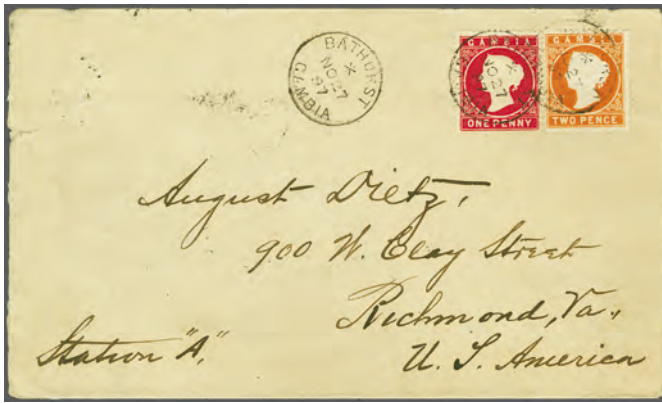 BATHURST
NO 27
97
GAMBIA
GAMBIA
ONE PENNY
GAMBIA
TWO PENCE
NO 27
August Dietz,
900 W. Clay Street
Richmond, Va.,
Station "A,"
U. S. America